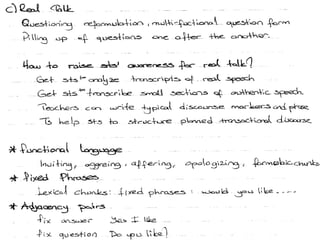 c) Real Talk
Questioning reformulation, multi-factional question form
Pilling up of questions one after the another.
How to raise sts' awareness for real talk?
Get sts' analyze transcripts of real speech
Get sts' transcribe small sections of authentic speech
Teachers can write typical discourse markers and phrase
To help sts to structure planned transactional discourse
* functional Language
Inviting, aggreing, offering, apologizing, formulaic chunks
* fixed Phrases
Lexical chunks: fixed phrases: would you like....
* Adjacency pairs
fix answer Yes I like
fix question Do you like?